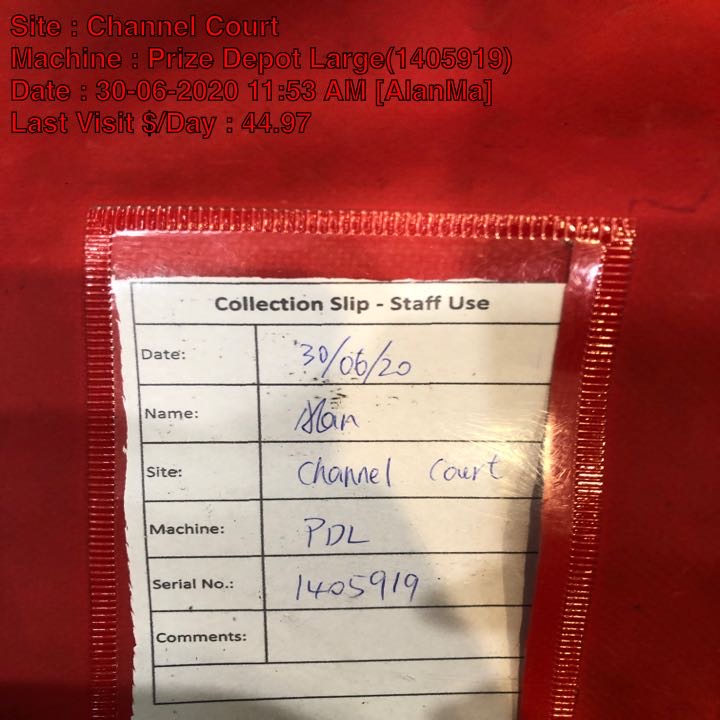 Site : Channel Court
Machine : Prize Depot Large(1405919)
Date : 30-06-2020 11:53 AM [AlanMa]
Last Visit $/Day : 44.97
Collection Slip - Staff Use
Date: 30/06/20
Name: Alan
Site: Channel Court
Machine: PDL
Serial No.: 1405919
Comments: